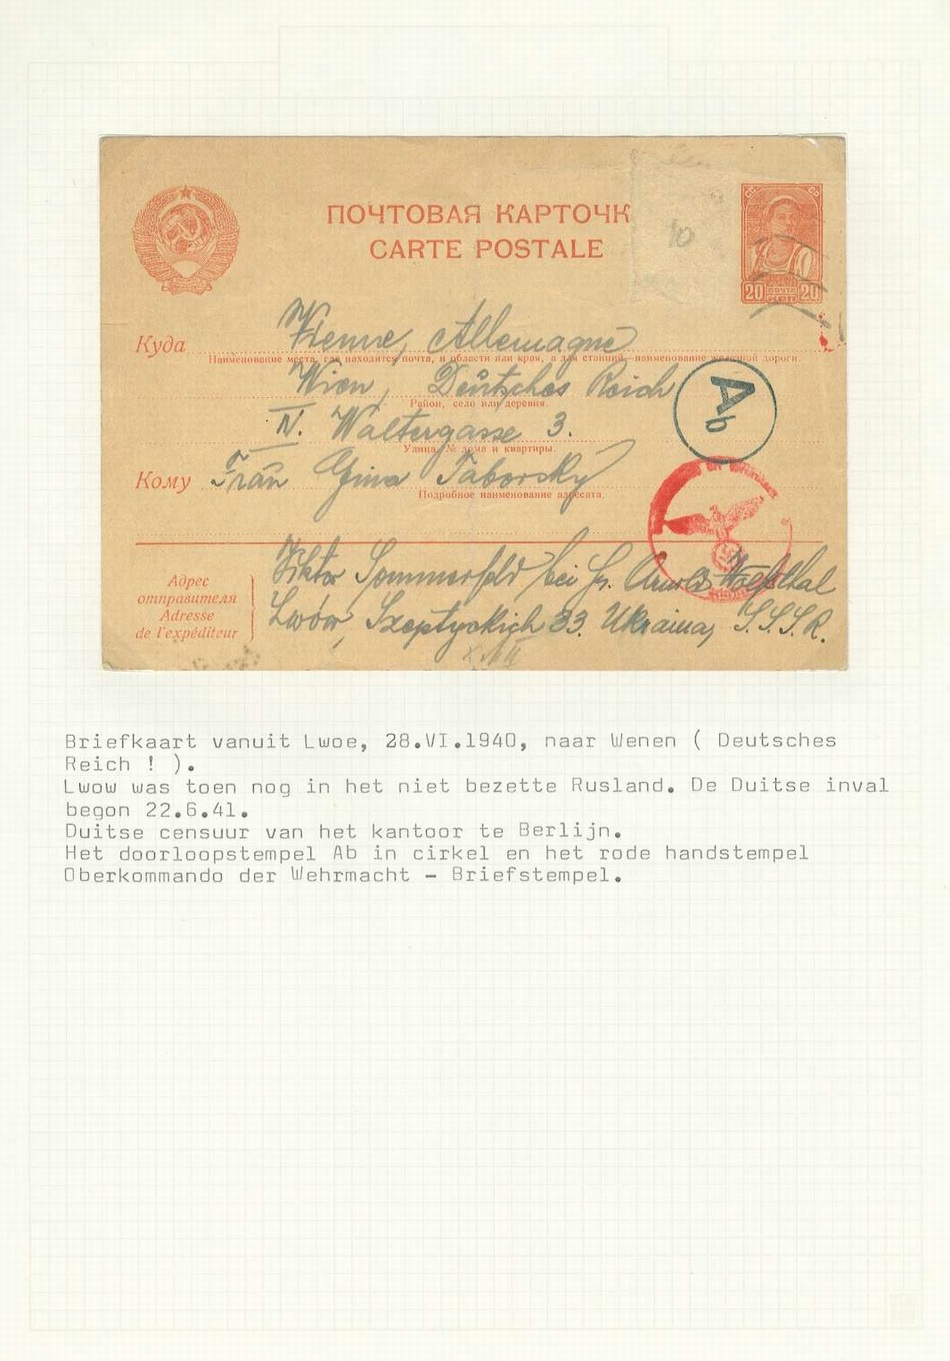 ПОЧТОВАЯ КАРТОЧК
CARTE POSTALE
10
20 ПОЧТА 20
Куда Vienne, Allemagne
Наименование места, где находится почта, и области или края, а для станций—наименование железной дороги.
Wien, Deutsches Reich
Район, село или деревня.
IV. Waltergasse 3.
Улица, № дома и квартиры.
Кому Frau Gina Taborsky
Подробное наименование адресата.
Ab
Адрес
отправителя
Adresse
de l'expéditeur
Viktor Sommerfeld bei Arnold
Lwów, Szeptyckich 33. Ukraina, S.S.S.R.
Briefkaart vanuit Lwoe, 28.VI.1940, naar Wenen ( Deutsches
Reich ! ).
Lwow was toen nog in het niet bezette Rusland. De Duitse inval
begon 22.6.41.
Duitse censuur van het kantoor te Berlijn.
Het doorloopstempel Ab in cirkel en het rode handstempel
Oberkommando der Wehrmacht - Briefstempel.